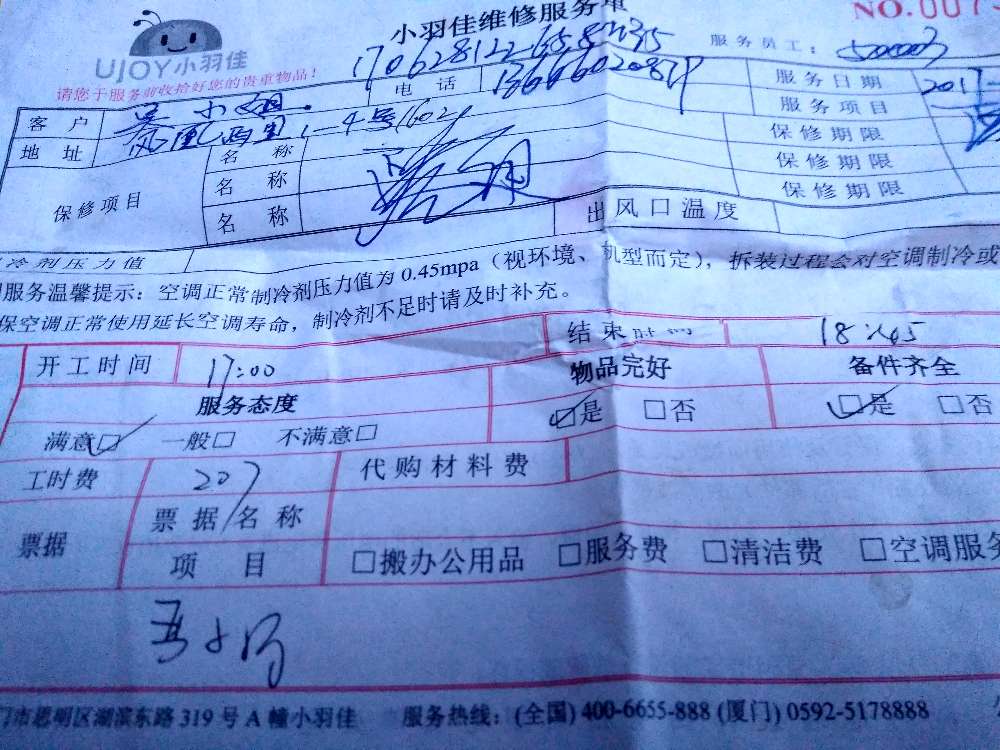 小羽佳维修服务单
NO.007
UJOY小羽佳
服务员工：
请您于服务前收拾好您的贵重物品！
170628122
客户
小姐
电话
服务日期
2017
地址
凤凰西里
4号1602
服务项目
保修项目
名称
保修期限
名称
保修期限
名称
保修期限
冷剂压力值
出风口温度
服务温馨提示：空调正常制冷剂压力值为 0.45mpa（视环境、机型而定），拆装过程会对空调制冷或
保空调正常使用延长空调寿命，制冷剂不足时请及时补充。
开工时间
17:00
结束时间
18:45
服务态度
物品完好
备件齐全
满意□ 一般□ 不满意□
□是 □否
□是 □否
工时费
207
代购材料费
票据
票据名称
项目
□搬办公用品 □服务费 □清洁费 □空调服务
门市思明区湖滨东路 319 号 A 幢小羽佳 服务热线：(全国) 400-6655-888 (厦门) 0592-5178888